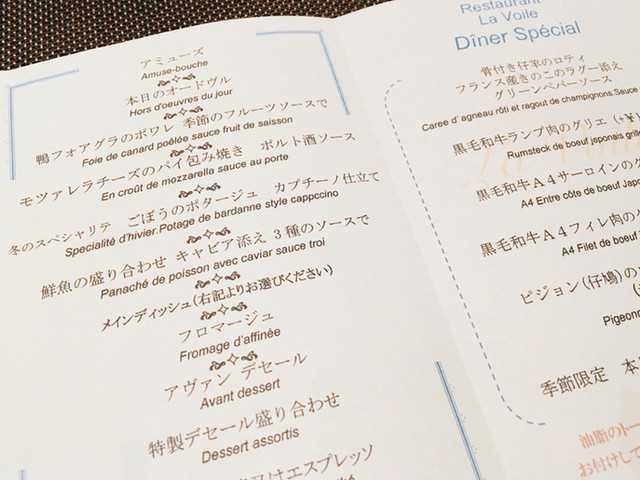 アミューズ
Amuse-bouche
本日のオードヴル
Hors d'oeuvres du jour
鴨フォアグラのポワレ 季節のフルーツソースで
Foie de canard poêlée sauce fruit de saisson
モツァレラチーズのパイ包み焼き ポルト酒ソース
En croût de mozzarella sauce au porte
冬のスペシャリテ ごぼうのポタージュ カプチーノ仕立て
Specialité d'hivier.Potage de bardanne style cappccino
鮮魚の盛り合わせ キャビア添え 3種のソースで
Panaché de poisson avec caviar sauce troi
メインディッシュ(右記よりお選びください)
フロマージュ
Fromage d'affinèe
アヴァン デセール
Avant dessert
特製デセール盛り合わせ
Dessert assortis
エスプレッソ
Restaurant
La Voile
Dîner Spécial
骨付き仔羊のロティ
フランス産きのこのラグー添え
グリーンペパーソース
Caree d' agneau rôti et ragout de champignons.Sauce
黒毛和牛ランプ肉のグリエ
Rumsteck de boeuf japonais grille
黒毛和牛A4サーロインの
A4 Entre côte de boeuf Japo
黒毛和牛A4フィレ肉の
A4 Filet de boeuf
ピジョン(仔鳩)の
Pigeonn
季節限定 本
油脂のトー
お付けして